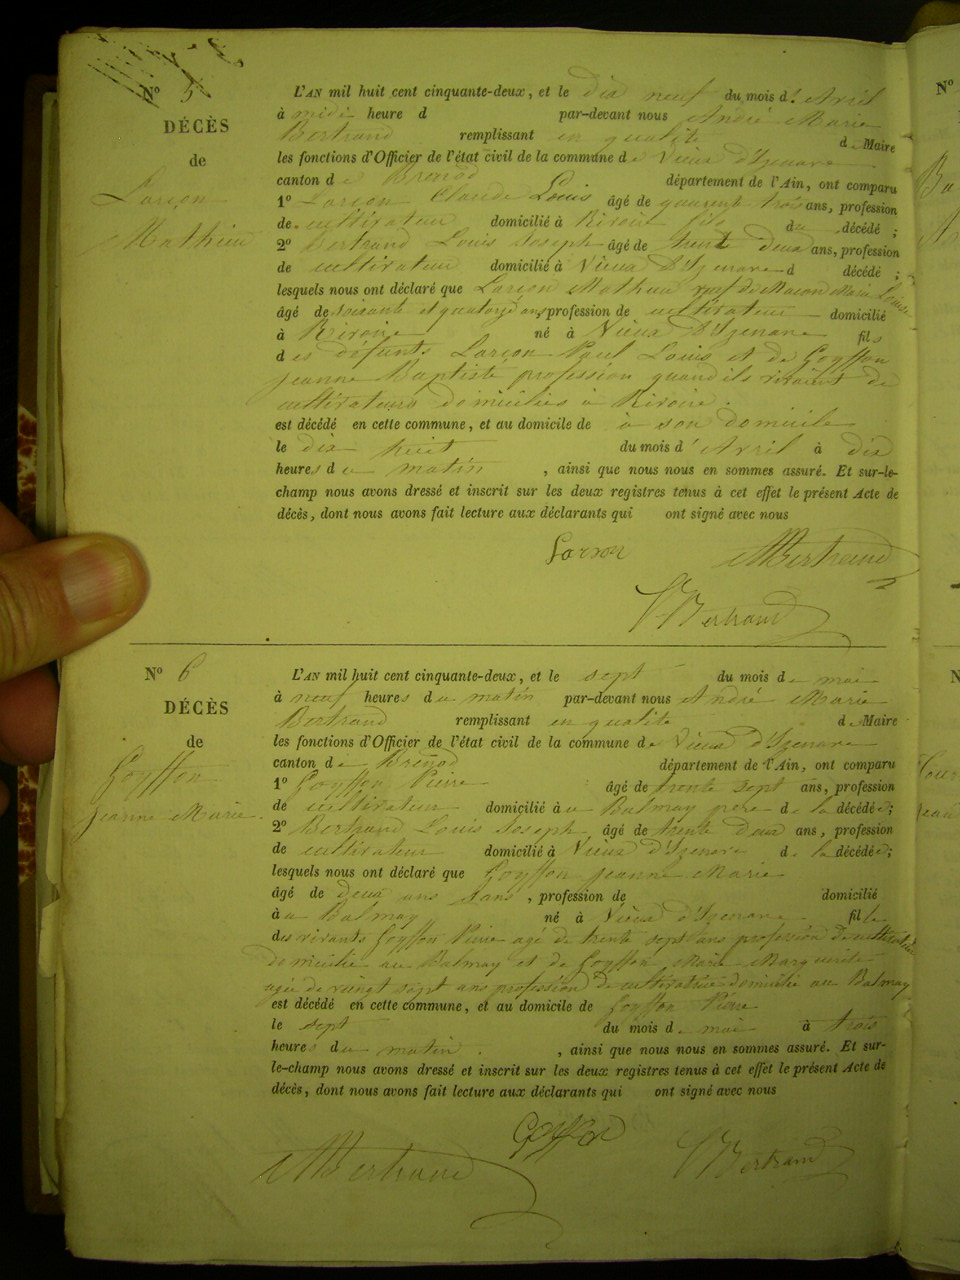 N° 5
DÉCÈS
de
Larçon
Mathieu
L'AN mil huit cent cinquante-deux, et le dix neuf du mois d' Avril
à midi heure d par-devant nous André Marie
Bertrand remplissant en qualité de Maire
les fonctions d'Officier de l'état civil de la commune de Vieux d'Izenave
canton de Brénod département de l'Ain, ont comparu
1° Larçon Claude Louis âgé de quarent trois ans, profession
de cultivateur domicilié à Rivoire fils du décédé ;
2° Bertrand Louis Joseph âgé de trente deux ans, profession
de cultivateur domicilié à Vieux d'Izenave d décédé ;
lesquels nous ont déclaré que Larçon Mathieu veuf de Macon Marie Louise
âgé de soixante et quatorze ans profession de cultivateur domicilié
à Rivoire né à Vieux d'Izenave fils
des défunts Larçon Paul Louis et de Goyffon
Jeanne Baptiste profession quand ils vivaient de
cultivateurs domiciliés à Rivoire.
est décédé en cette commune, et au domicile de à son domicile
le dix huit du mois d' Avril à dix
heures du matin , ainsi que nous nous en sommes assuré. Et sur-le-
champ nous avons dressé et inscrit sur les deux registres tenus à cet effet le présent Acte de
décès, dont nous avons fait lecture aux déclarants qui ont signé avec nous
Larson Bertrand
Bertrand
N° 6
DÉCÈS
de
Goyffon
Jeanne Marie
L'AN mil huit cent cinquante-deux, et le sept du mois de mai
à neuf heures du matin par-devant nous André Marie
Bertrand remplissant en qualité de Maire
les fonctions d'Officier de l'état civil de la commune de Vieux d'Izenave
canton de Brénod département de l'Ain, ont comparu
1° Goyffon Pierre âgé de trente sept ans, profession
de cultivateur domicilié à au Balmay père de la décédée ;
2° Bertrand Louis Joseph âgé de trente deux ans, profession
de cultivateur domicilié à Vieux d'Izenave de la décédée ;
lesquels nous ont déclaré que Goyffon Jeanne Marie
âgé de deux ans sans , profession de domicilié
à au Balmay né à Vieux d'Izenave fille
des vivants Goyffon Pierre agé de trente sept ans profession de cultivateur
domicilié au Balmay et de Goyffon Marie Marguerite
agée de vingt sept ans profession de cultivatrice domicilié au Balmay
est décédé en cette commune, et au domicile de Goyffon Pierre
le sept du mois de mai à trois
heures du matin , ainsi que nous nous en sommes assuré. Et sur-
le-champ nous avons dressé et inscrit sur les deux registres tenus à cet effet le présent Acte de
décès, dont nous avons fait lecture aux déclarants qui ont signé avec nous
Goyffon
Bertrand Bertrand